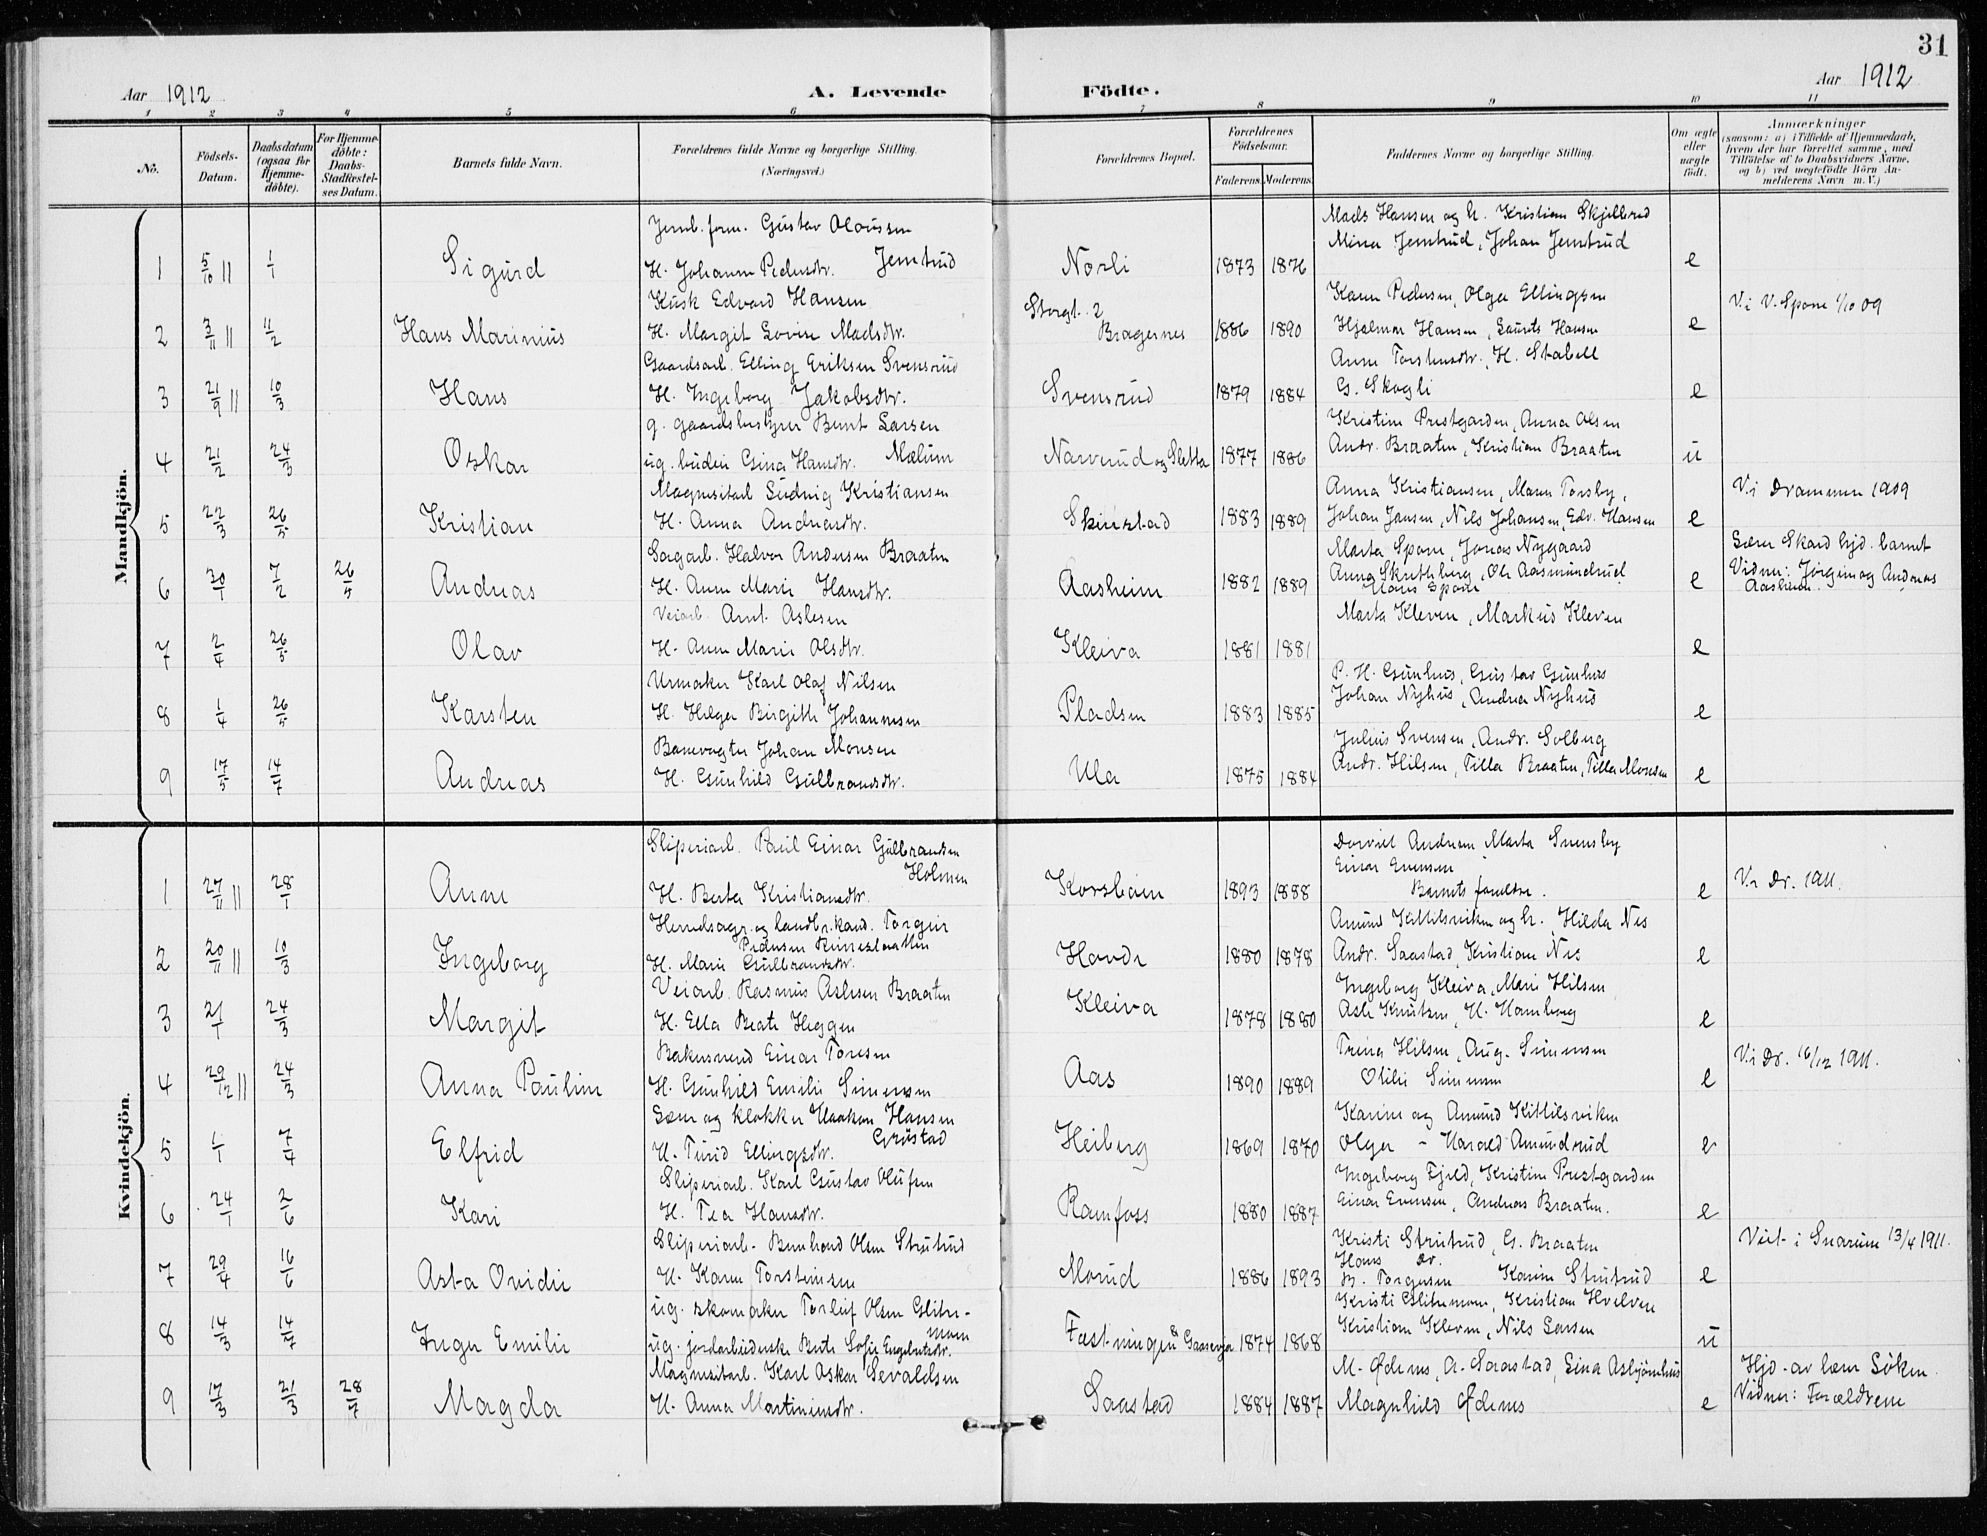 31
Aar 1912
A. Levende Födte.
Aar 1912
1 2 3 4 5 6 7 8 9 10 11
No.
Födsels-Datum.
Daabsdatum (ogsaa for Hjemme-döbte).
For Hjemme-döbte: Daabs-Stadfæstel-ses Datum.
Barnets fulde Navn.
Forældrenes fulde Navne og borgerlige Stilling. (Næringsvei.)
Forældrenes Bopæl.
Forældrenes Födselsaar.
Faderens. Moderens.
Faddernes Navne og borgerlige Stilling.
Om ægte eller uægte födt.
Anmærkninger
(saasom: a) i Tilfælde af Hjemmedaab, hvem der har forrettet samme, med Tilföielse af to Daabsvidners Navne, og b) ved uægtefödte Börn An-melderens Navn m. V.)
Mandkjön.
1 5/10 11 1/1 Sigurd
Jernb. form. Gustav Olaussen Jemtrud
H. Johanne Pedersdtr.
Norli 1873 1876
Mads Hansen og h. Kristian Skjelbred
Mina Jemtrud, Johan Jemtrud
e
2 3/11 11 11/2 Hans Marinius
Kusk Edvard Hansen
H. Margit Lovise Madsdtr.
Storgt. 2 Bragernes 1886 1890
Karen Pedersen, Olga Ellingsen
Hjalmar Hansen, Laurits Hansen
e
V. i V. Spone 1/10 09
3 21/9 11 10/3 Hans
Gaardsarb. Elling Eriksen Svensrud
H. Ingeborg Jakobsdtr.
Svensrud 1879 1884
Anne Torstensdtr. H. Stabell
G. Skogli
e
4 21/2 24/3 Oskar
g. gaardsbestyrer Bernt Larsen Mælum
ug. budeie Gina Hansdtr.
Narverud og Sletta 1877 1886
Kristine Prestgarden, Anna Olsen
Andr. Braaten, Kristian Braaten
u
5 22/3 26/5 Kristian
Magnesitarb Ludvig Kristiansen
H. Anna Andreasdtr.
Skinstad 1883 1889
Anna Kristiansen, Maren Torsby,
Johan Jansen, Nils Johansen, Edv. Hansen
e
V. i Drammen 1909
6 30/1 7/2 26/5 Andreas
Sagarb. Halvor Andersen Braaten
H. Anne Marie Hansdtr.
Aasheim 1882 1889
Marta Spone, Jonas Nygaard
Anna Skretteberg, Ole Aasmundrud
Hans Spone
e
Lærer Skard hjd. barnet
Vidner: Jørgine og Andreas Aasheim.
7 2/4 26/5 Olav
Veiarb. Arnt Aslesen
H. Anne Marie Olsdtr.
Kleiva 1881 1881
Marta Kleven, Markus Kleven
e
8 1/4 26/5 Karsten
Urmaker Karl Olaf Nilsen
H. Helga Birgitte Johannesen
Pladsen 1883 1885
P. H. Gunhus, Gustav Gunhus
Johan Nyhus, Andrea Nyhus
e
9 17/5 14/7 Andreas
Banevogter Johan Monsen
H. Gunhild Gulbrandsdtr.
Ula 1875 1884
Julius Svensen, Andr. Solberg
Andr. Hilsen, Tilla Braaten, Tilla Monsen
e
Kvindekjön.
1 27/11 11 28/1 Anne
Sliperiarb. Paul Einar Gulbrandsen Holmen
H. Berta Kristiansdtr.
Korsbøen 1893 1888
Marta Svensby
Einar Evensen
Barnets forældre.
e
V. i Dr. 1911.
2 20/11 11 10/3 Ingeborg
Herredsagr. og landbr.kand. Torgeir Pedersen
H. Marie Gulbrandsdtr.
Hovde 1880 1878
Amund Kittilsviken og h. Hilda Nes
Andr. Saastad, Kristian Nes
e
3 21/1 24/3 Margit
Veiarb. Rasmus Aslesen Braaten
H. Ella Beate Heggen
Kleiva 1878 1880
Ingeborg Kleiva, Marie Hilsen
Asle Knutsen, H. Hamborg
e
4 29/12 11 24/3 Anna Pauline
Bakersvend Einar Toresen
H. Gunhild Emilie Simensen
Aas 1890 1889
Trina Hilsen, Aug. Simensen
Otilie Simensen
e
V. i Dr. 16/12 1911.
5 1/1 7/4 Elfrid
Lærer og klokker Haakon Hansen Grustad
H. Turid Ellingsdtr.
Heiberg 1869 1870
Karine og Amund Kittilsviken
Olga - Harald Amundrud
e
6 24/1 2/6 Kari
Sliperiarb. Karl Gustav Olufsen
H. Tea Hansdtr.
Ramfoss 1880 1887
Ingeborg Fjeld, Kristine Prestgarden
Einar Evensen, Andreas Braaten.
e
7 29/4 16/6 Asta Ovidie
Sliperiarb. Bernhard Olsen Strutrud
H. Karen Torstensen
Morud 1886 1893
Kristi Strutrud, G. Braaten
Hans do.
M. Torgersen Karine Strutrud
e
Viet i Snarum 13/4 1911.
8 14/3 14/7 Inger Emilie
ug. skomaker Torleif Olsen Glitre-moen
ug. jordarbeiderske Berte Sofie Engebretsdtr.
Fæstningen & Gaaserya 1874 1868
Kristi Glitremoen, Kristian Hvelven
Kristian Kleven, Nils Larsen
u
9 17/3 21/3 28/7 Magda
Magnesitarb. Karl Oskar Sevaldsen
H. Anna Martiniusdtr.
Saastad 1884 1887
M. Ødenes, A. Saastad, Lina Asbjörnhus
Magnhild Ødenes
e
Hjd. av lærer Söken.
Vidner: Forældrene